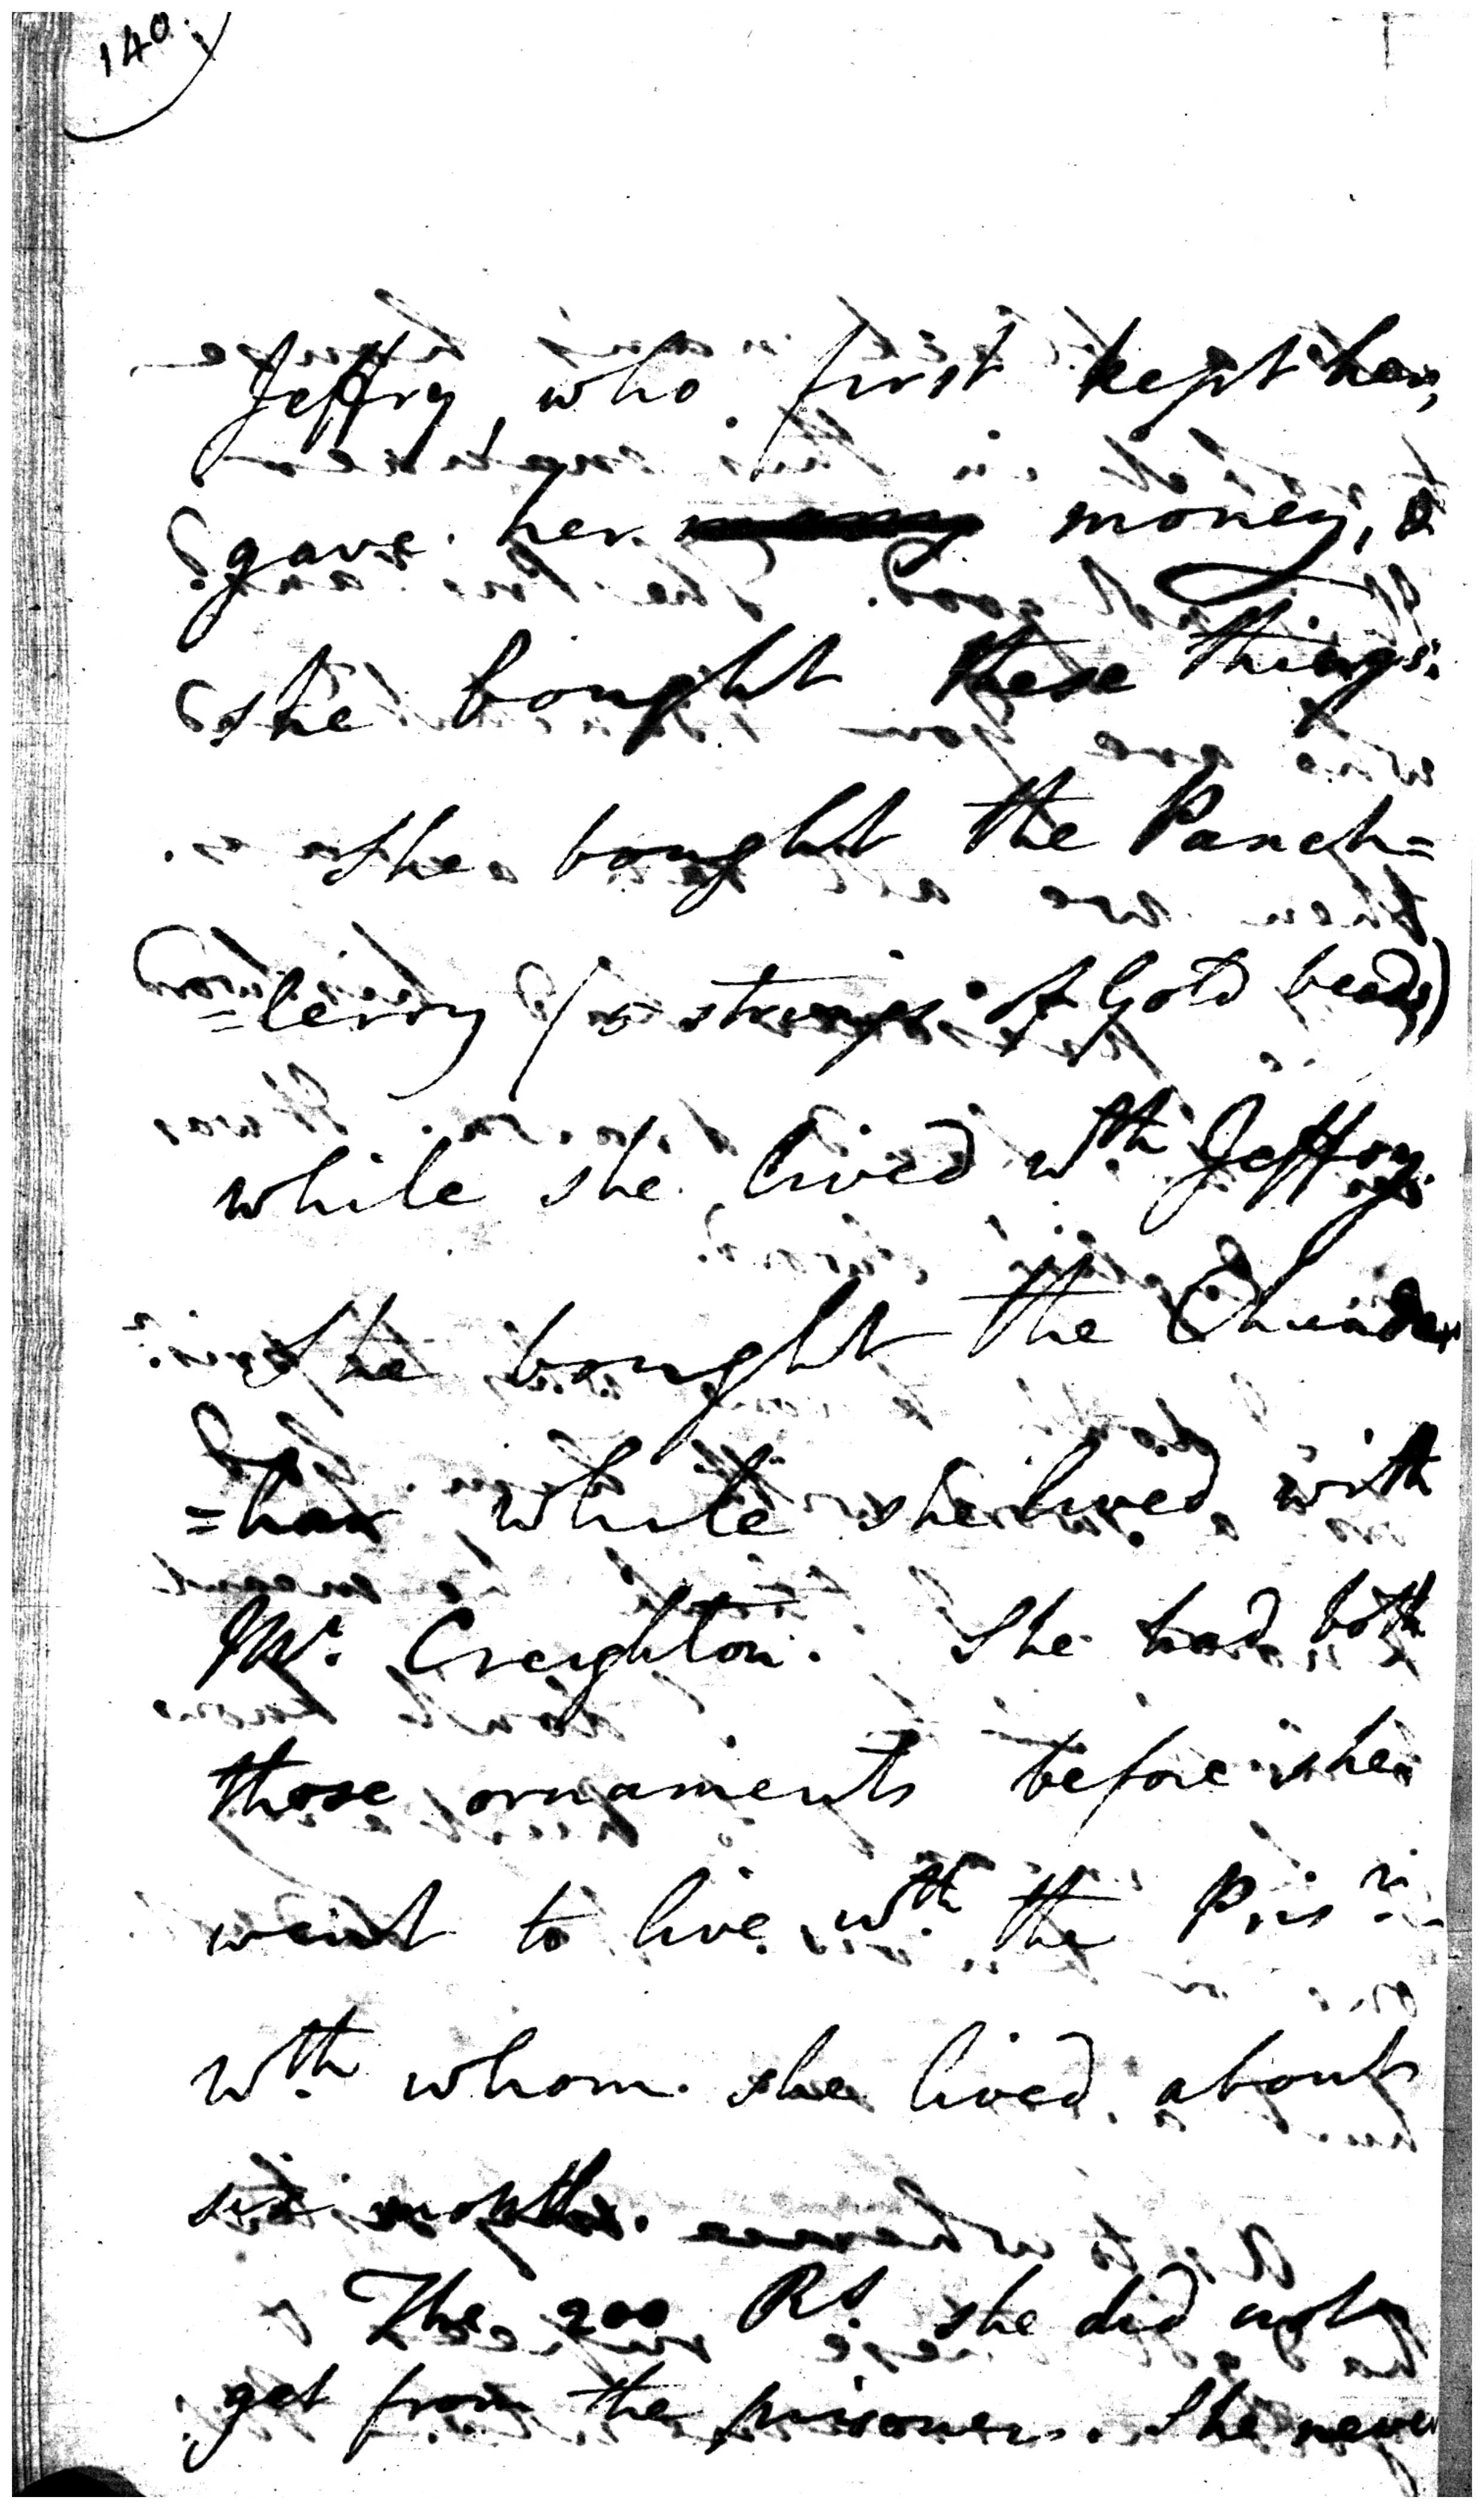 140.
Jeffry, who first kept her,
gave her money, &
she bought these things.
She bought the Panch=
=lerry (5 strings of Gold beads)
while she lived wth Jeffry.
She bought the Chunder
=har while she lived with
Mr. Creighton. She had both
those ornaments before she
went to live wth the Prisr.
wth whom she lived about
six months.
The 200 Rs. she did not
get from the prisoner. She never